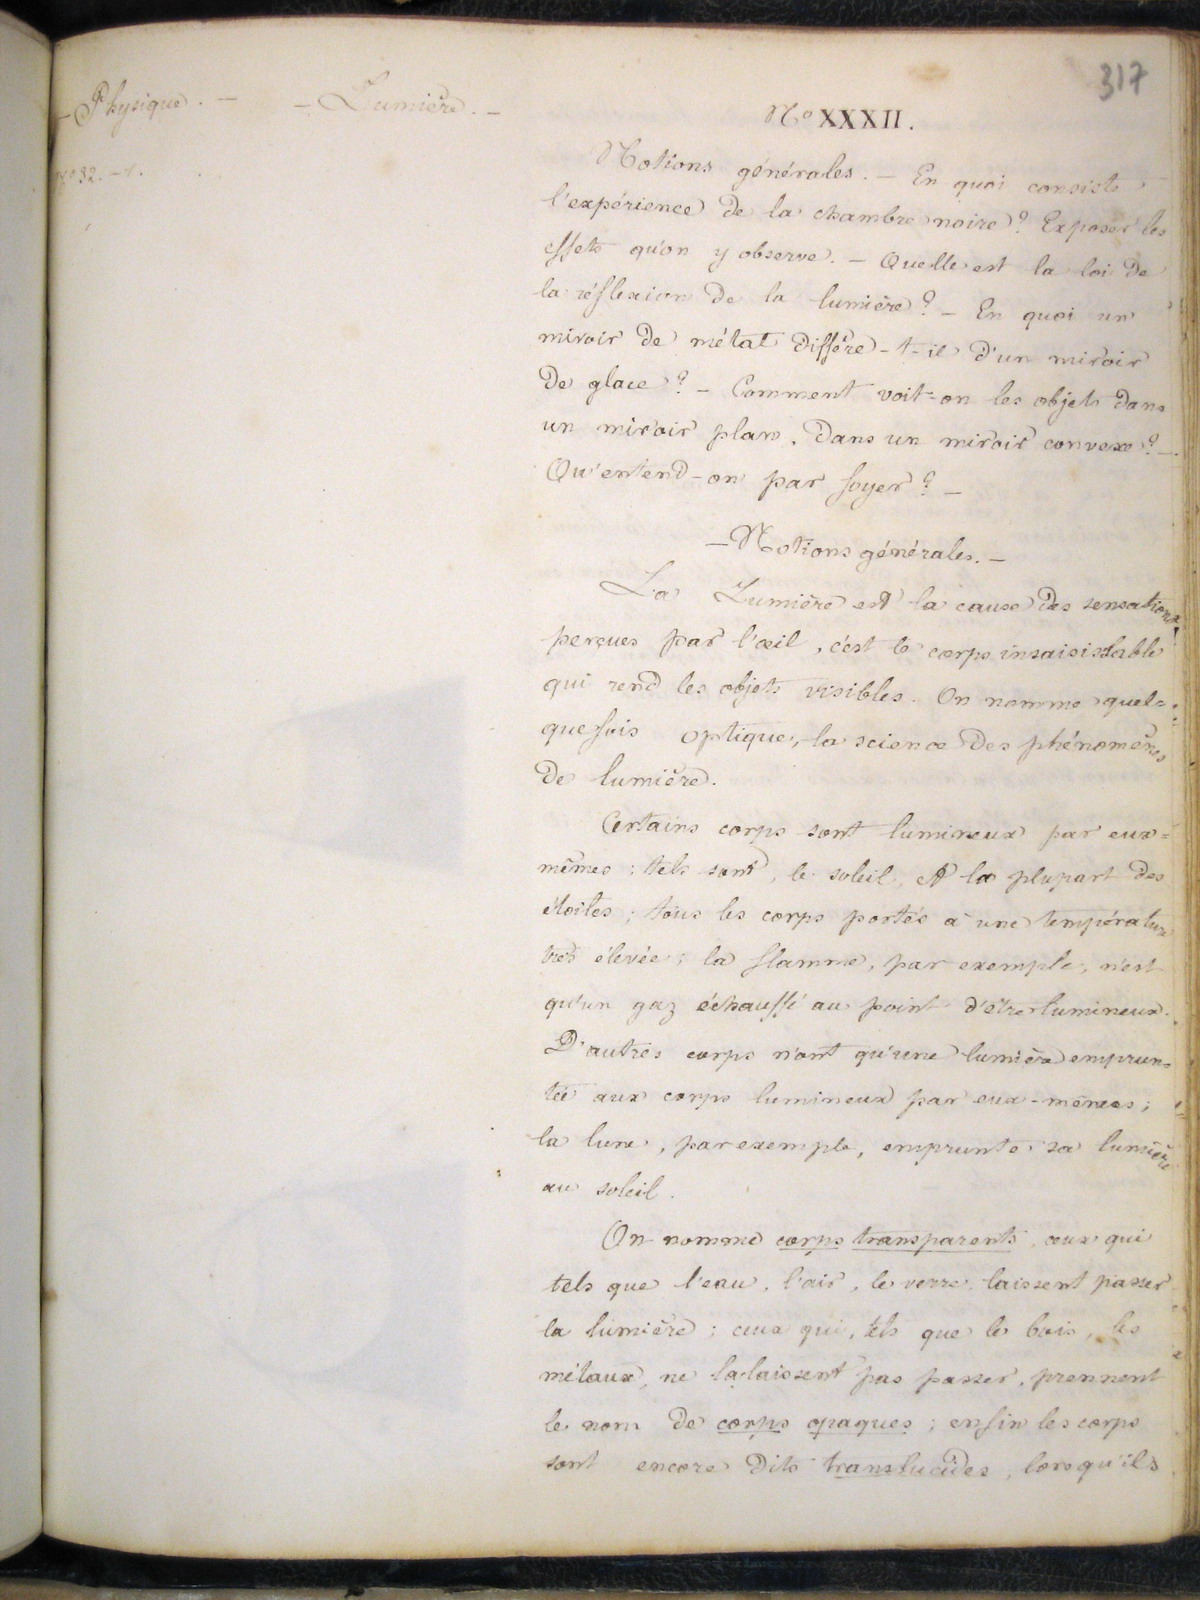 317
- Physique. -
- Lumière. -
N° 32. - 1.
N° XXXII.
Notions générales. - En quoi consiste
l'expérience de la chambre noire? Exposer les
effets qu'on y observe. - Quelle est la loi de
la réflexion de la lumière? - En quoi un
miroir de métal diffère-t-il d'un miroir
de glace? - Comment voit-on les objets dans
un miroir plan, dans un miroir convexe? -
Qu'entend-on par foyer? -
- Notions générales. -
La Lumière est la cause des sensations
perçues par l'œil, c'est le corps insaisissable
qui rend les objets visibles. On nomme quel=
quefois optique, la science des phénomènes
de lumière.
Certains corps sont lumineux par eux=
mêmes; tels sont, le soleil, et la plupart des
étoiles; tous les corps portés à une température
très élevée; la flamme, par exemple, n'est
qu'un gaz échauffé au point d'être lumineux.
D'autres corps n'ont qu'une lumière emprun=
tée aux corps lumineux par eux-mêmes;
la lune, par exemple, emprunte sa lumière
au soleil.
On nomme corps transparents, ceux qui
tels que l'eau, l'air, le verre, laissent passer
la lumière; ceux qui, tels que le bois, les
métaux, ne la laissent pas passer, prennent
le nom de corps opaques; enfin les corps
sont encore dits translucides, lorsqu'ils